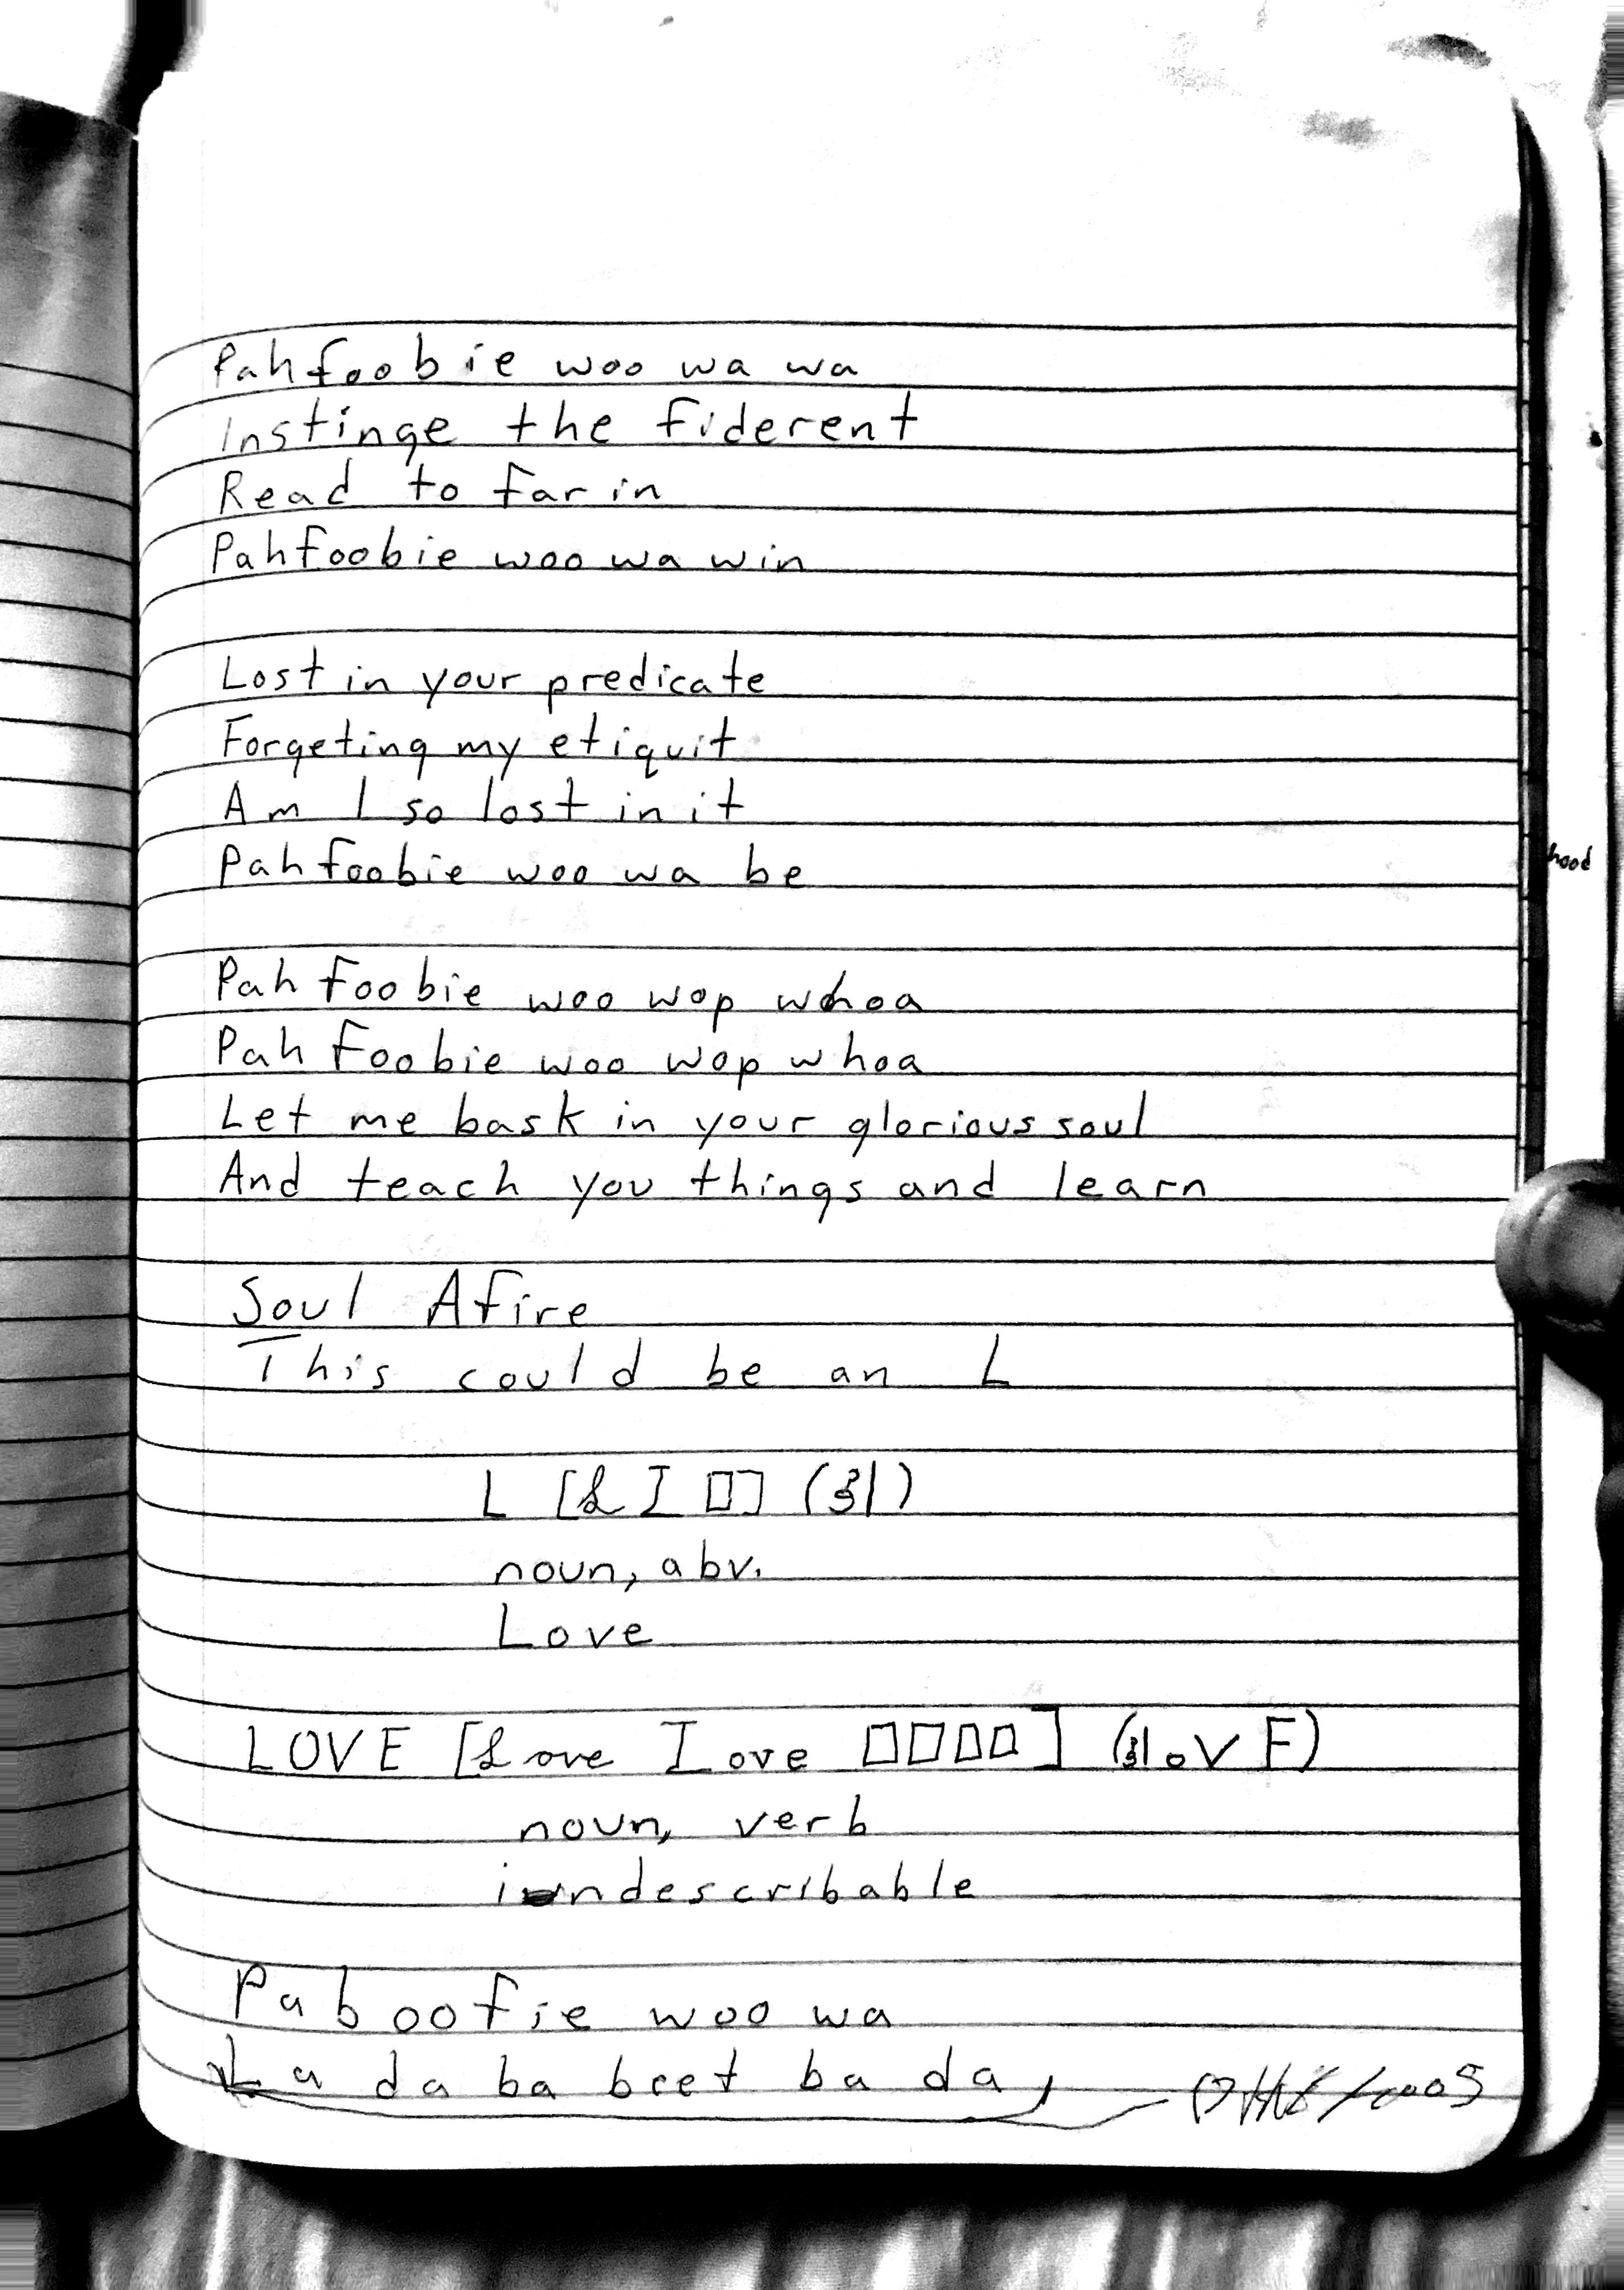 Pahfoobie woo wa wa
Instinge the fiderent
Read to far in
Pahfoobie woo wa win
Lost in your predicate
Forgeting my etiquit
Am I so lost in it
Pahfoobie woo wa be
hood
Pah foobie woo wop whoa
Pah foobie woo wop whoa
Let me bask in your glorious soul
And teach you things and learn
Soul Afire
This could be an L
L [£ I □]
noun, abv.
Love
LOVE [£ove Iove □□□□]
noun, verb
indescribable
Paboofie woo wa
La da ba beet ba da,